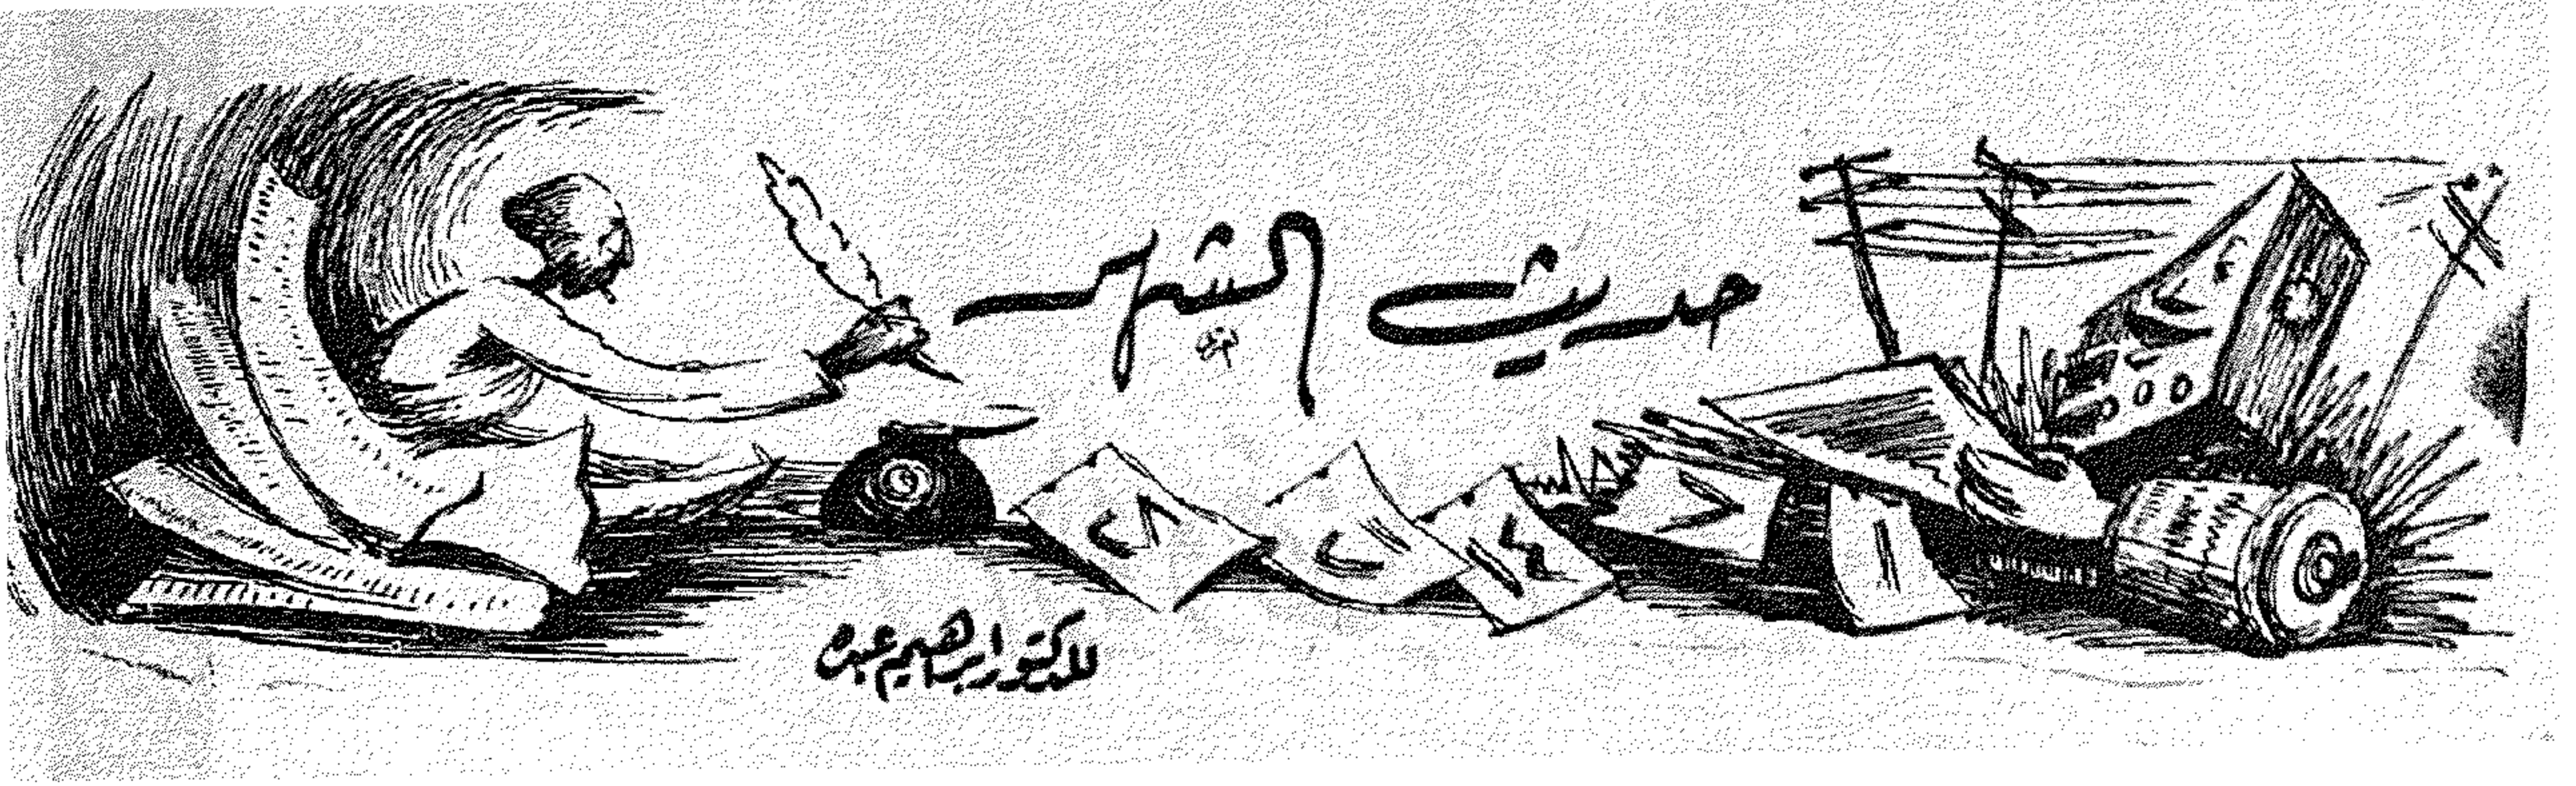 حديث الشهر
٢٨
١٤
٧
١
للدكتور ابراهيم عبده